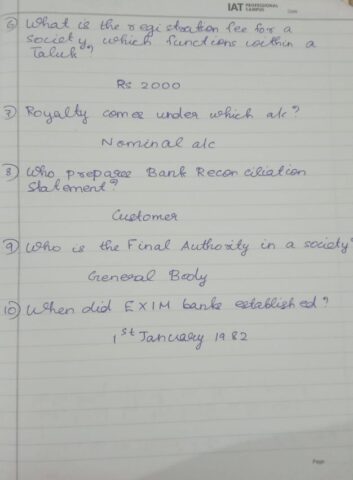 IAT PROFESSIONAL CAMPUS
Date
6) What is the registration fee for a
society, which functions within a
Taluk?
Rs 2000
7) Royalty comes under which a/c?
Nominal a/c
8) Who prepares Bank Reconciliation
Statement?
Customer
9) Who is the Final Authority in a society?
General Body
10) When did EXIM banks established?
1st January 1982
Page